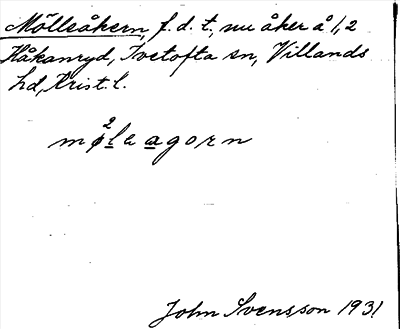 Möllsåkern, f.d.t., nu åker å 1,2
Håkanryd, Ivetofta sn, Villands
hd, Krist. l.
mø²leagorn
John Svensson 1931